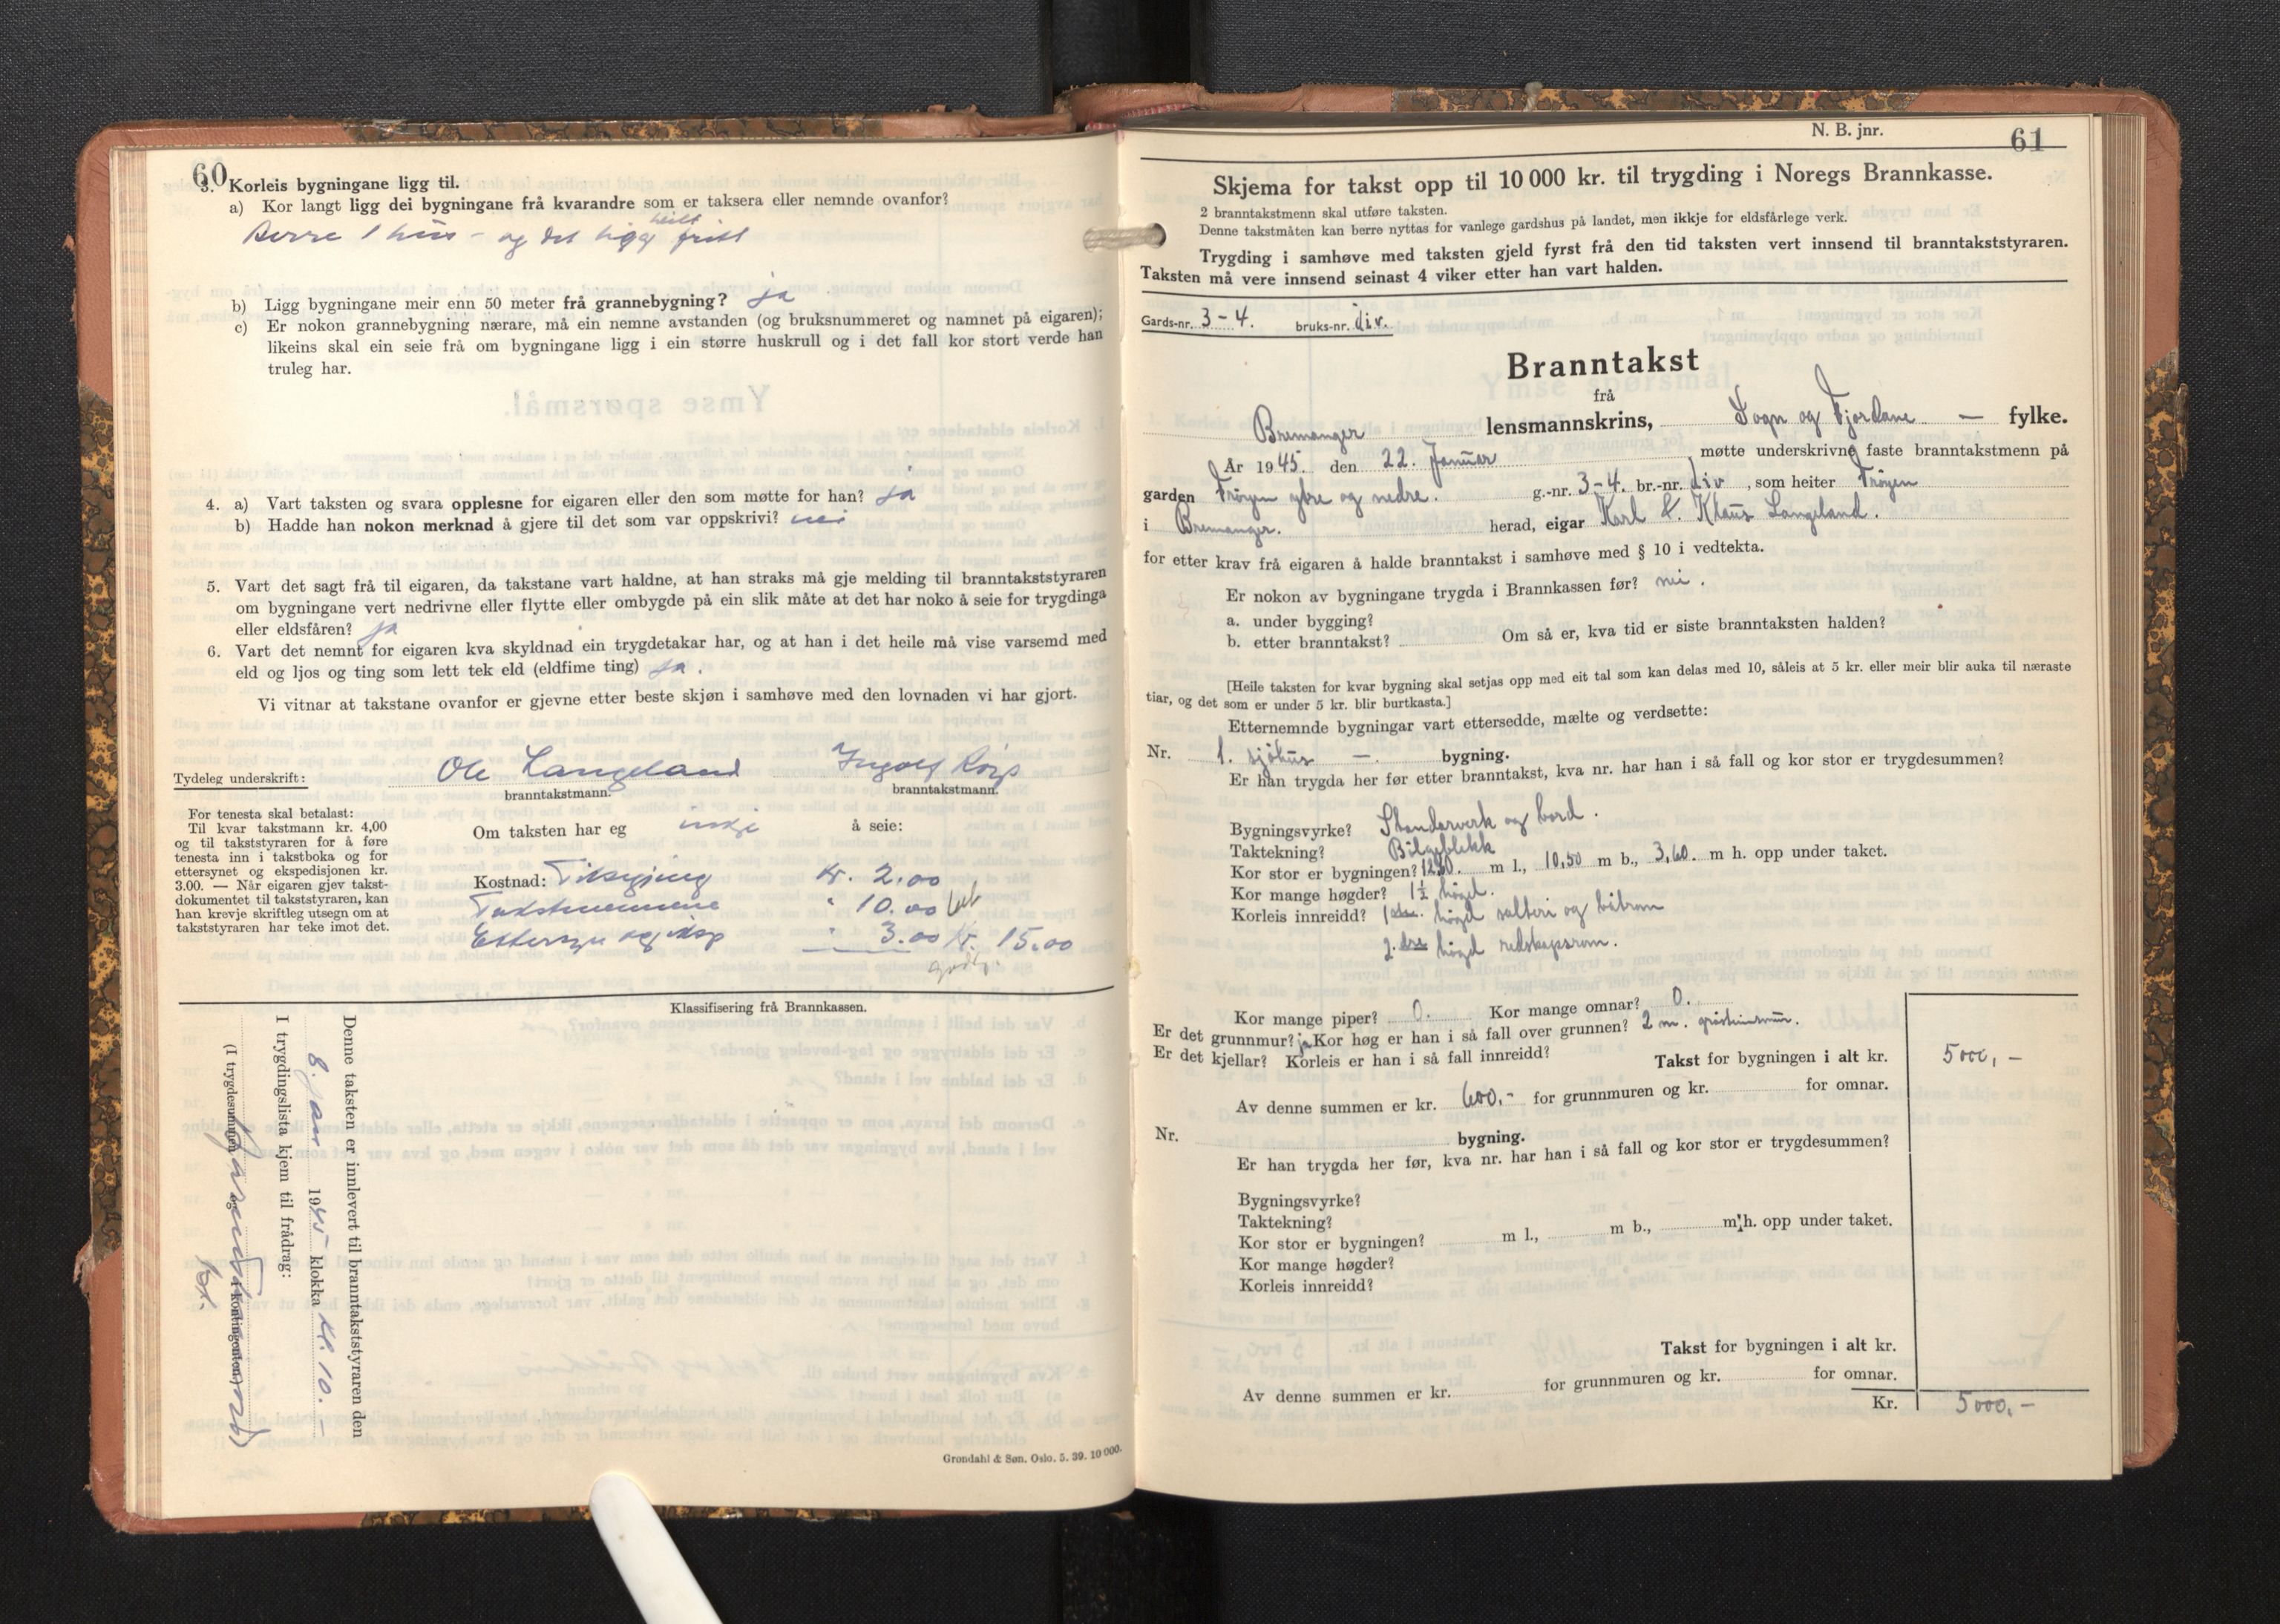 60
3. Korleis bygningane ligg til.
a) Kor langt ligg dei bygningane frå kvarandre som er taksera eller nemnde ovanfor?
Berre 1 hus – og det ligg heilt fritt
b) Ligg bygningane meir enn 50 meter frå grannebygning? ja
c) Er nokon grannebygning nærare, må ein nemne avstanden (og bruksnummeret og namnet på eigaren);
likeins skal ein seie frå om bygningane ligg i ein større huskrull og i det fall kor stort verde han
truleg har.
4. a) Vart taksten og svara opplesne for eigaren eller den som møtte for han? ja
b) Hadde han nokon merknad å gjere til det som var oppskrivi? nei
5. Vart det sagt frå til eigaren, da takstane vart haldne, at han straks må gje melding til branntakststyraren
om bygningane vert nedrivne eller flytte eller ombygde på ein slik måte at det har noko å seie for trygdinga
eller eldsfåren? ja
6. Vart det nemnt for eigaren kva skyldnad ein trygdetakar har, og at han i det heile må vise varsemd med
eld og ljos og ting som lett tek eld (eldfime ting) ja.
Vi vitnar at takstane ovanfor er gjevne etter beste skjøn i samhøve med den lovnaden vi har gjort.
Tydeleg underskrift: Ole Langeland Ingolf
branntakstmann. branntakstmann.
For tenesta skal betalast:
Til kvar takstmann kr. 4,00
og til takststyraren for å føre
tenesta inn i takstboka og for
ettersynet og ekspedisjonen kr.
3.00. — Når eigaren gjev takst-
dokumentet til takststyraren, kan
han krevje skriftleg utsegn om at
takststyraren har teke imot det.
Om taksten har eg inkje å seie:
Kostnad: Tilseiing kr. 2.00
Takstmennene " 10.00
Ettersyn og eksp " 3.00 kr. 15.00
Klassifisering frå Brannkassen.
Denne taksten er innlevert til branntakststyraren den
8. jan 1945 klokka kl. 10. –
I trygdingslista kjem til frådrag:
(I trygdesummen og i kontingenten)
Grøndahl & Søn. Oslo. 5. 39. 10 000.
N. B. jnr.
61
Skjema for takst opp til 10 000 kr. til trygding i Noregs Brannkasse.
2 branntakstmenn skal utføre taksten.
Denne takstmåten kan berre nyttas for vanlege gardshus på landet, men ikkje for eldsfårlege verk.
Trygding i samhøve med taksten gjeld fyrst frå den tid taksten vert innsend til branntakststyraren.
Taksten må vere innsend seinast 4 viker etter han vart halden.
Gards-nr. 3-4. bruks-nr. div.
Branntakst
frå
Bremanger lensmannskrins, Sogn og Fjordane — fylke.
År 1945 den 22. Januar møtte underskrivne faste branntakstmenn på
garden Frøyen ytre og nedre. g.-nr. 3-4. br.-nr. div, som heiter Frøyen
i Bremanger. herad, eigar Karl & Klaus Langeland.
for etter krav frå eigaren å halde branntakst i samhøve med § 10 i vedtekta.
Er nokon av bygningane trygda i Brannkassen før? nei.
a. under bygging?
b. etter branntakst? Om så er, kva tid er siste branntaksten halden?
[Heile taksten for kvar bygning skal setjas opp med eit tal som kan delas med 10, såleis at 5 kr. eller meir blir auka til næraste
tiar, og det som er under 5 kr. blir burtkasta.]
Etternemnde bygningar vart ettersedde, mælte og verdsette:
Nr. 1. sjøhus — bygning.
Er han trygda her før etter branntakst, kva nr. har han i så fall og kor stor er trygdesummen?
Bygningsvyrke? Standerverk og bord.
Taktekning? Bølgeblikk
Kor stor er bygningen? m l., 10,50 m b., 3,60. m h. opp under taket.
Kor mange høgder? 1½ høgd.
Korleis innreidd? 1 høgd salteri og bitrom
2. høgd redskapsrom.
Kor mange piper? 0. Kor mange omnar? 0.
Er det grunnmur? ja Kor høg er han i så fall over grunnen? 2 m. gråsteinsmur.
Er det kjellar? Korleis er han i så fall innreidd? Takst for bygningen i alt kr. 5000,–
Av denne summen er kr. 600.– for grunnmuren og kr. for omnar.
Nr. bygning.
Er han trygda her før, kva nr. har han i så fall og kor stor er trygdesummen?
Bygningsvyrke?
Taktekning?
Kor stor er bygningen? m l., m b., m h. opp under taket.
Kor mange høgder?
Korleis innreidd?
Takst for bygningen i alt kr.
Av denne summen er kr. for grunnmuren og kr. for omnar.
Kr. 5000,–